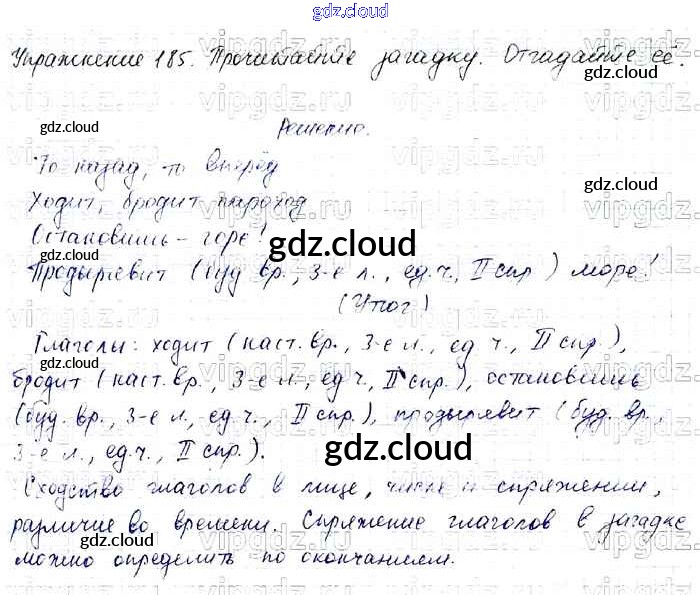 gdz.cloud
Упражнение 185. Прочитайте загадку. Отгадайте её.
gdz.cloud
gdz.cloud
Решение.
То назад, то вперёд
gdz.cloud
Ходит, бродит пароход
Остановишь - горе!
gdz.cloud
Продырявит (буд вр., 3-е л., ед.ч, II спр) море!
(Утюг)
Глаголы: ходит (наст. вр., 3-е л., ед ч., II спр.),
бродит (наст. вр., 3-е л., ед ч, II спр.), остановишь
(буд. вр., 3-е л., ед.ч., II спр.), продырявит (буд. вр.,
3-е л., ед.ч., II спр.).
gdz.cloud
Сходство глаголов в лице, числе и спряжении,
различие во времени. Спряжение глаголов в загадке
можно определить по окончанием.
gdz.cloud
gdz.cloud